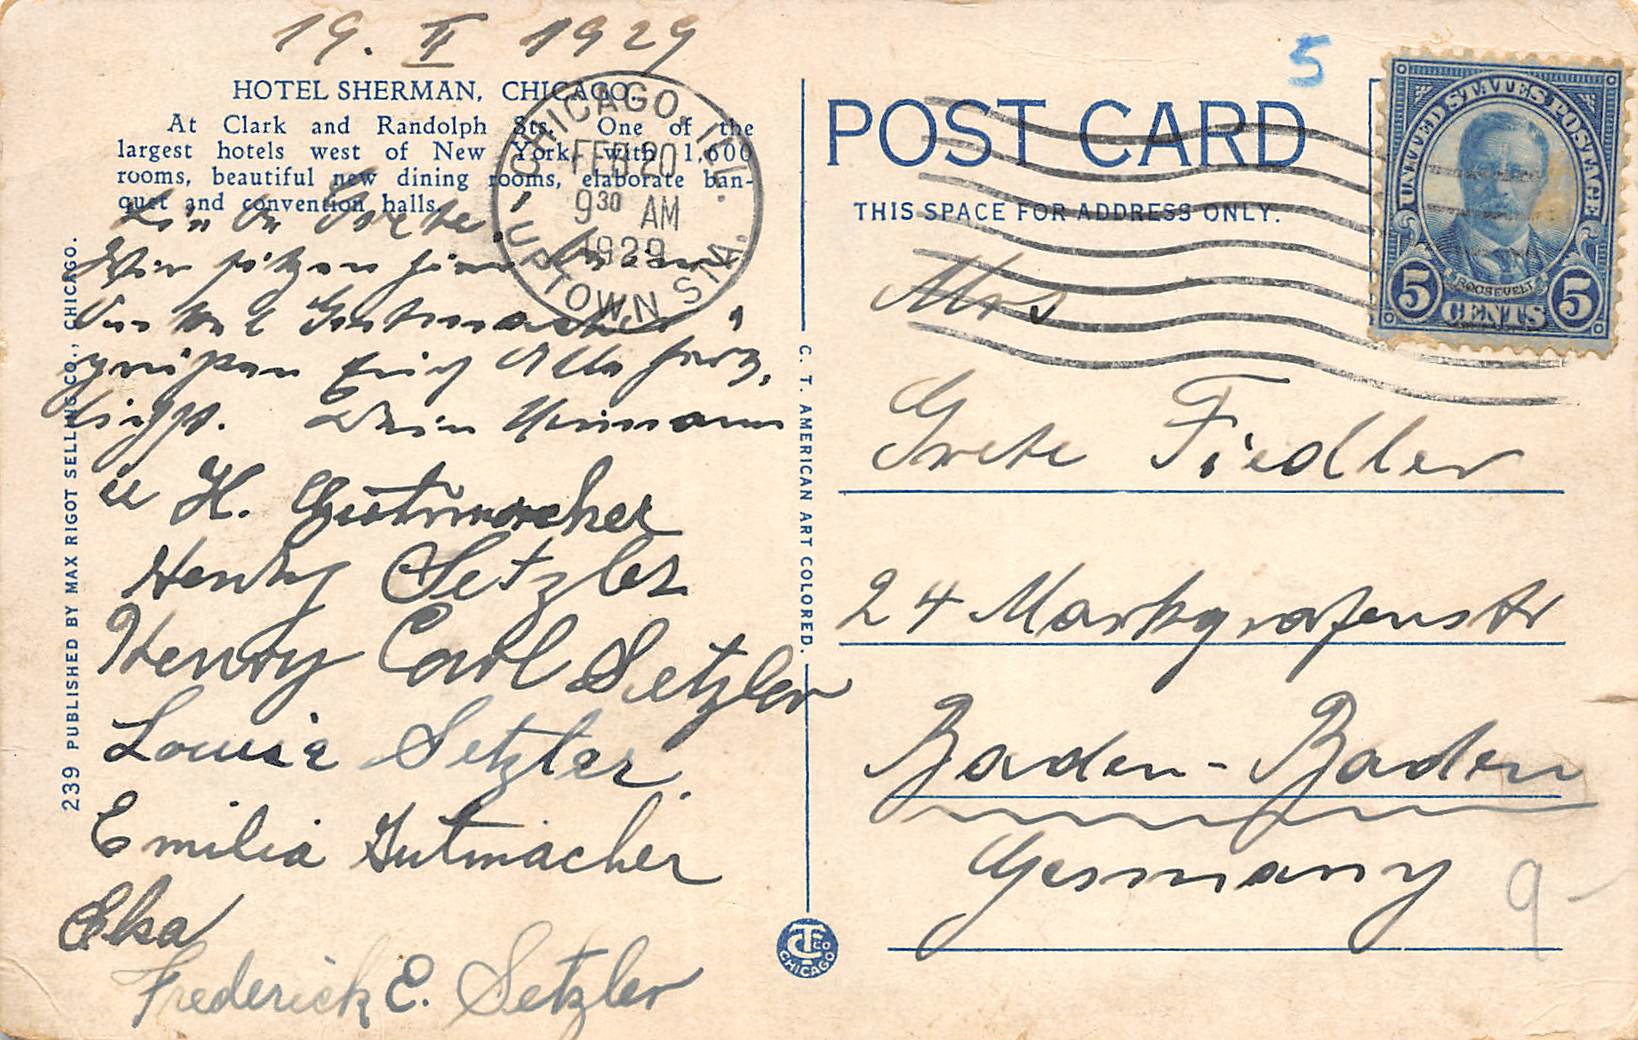 19. II 1929
HOTEL SHERMAN, CHICAGO.
At Clark and Randolph Sts. One of the
largest hotels west of New York, with 1,600
rooms, beautiful new dining rooms, elaborate ban-
quet and convention halls.
Grete!
Wir sitzen hier
Gutmacher
grüßen Euch Alle herz-
lichst. Dein Hermann
u H. Gutmacher
Henry Setzler
Henry Carl Setzler
Louise Setzler.
Emilia Gutmacher
Elsa
Frederick E. Setzler
239 PUBLISHED BY MAX RIGOT SELLING CO., CHICAGO.
CHICAGO, ILL.
FEB 20
9 30 AM
1929
UPTOWN STA.
C. T. AMERICAN ART COLORED.
CT CO
CHICAGO
POST CARD
THIS SPACE FOR ADDRESS ONLY.
5
UNITED STATES POSTAGE
ROOSEVELT
5 CENTS 5
Mrs
Grete Fiedler
24 Markgrafenstr
Baden-Baden
Germany
9-